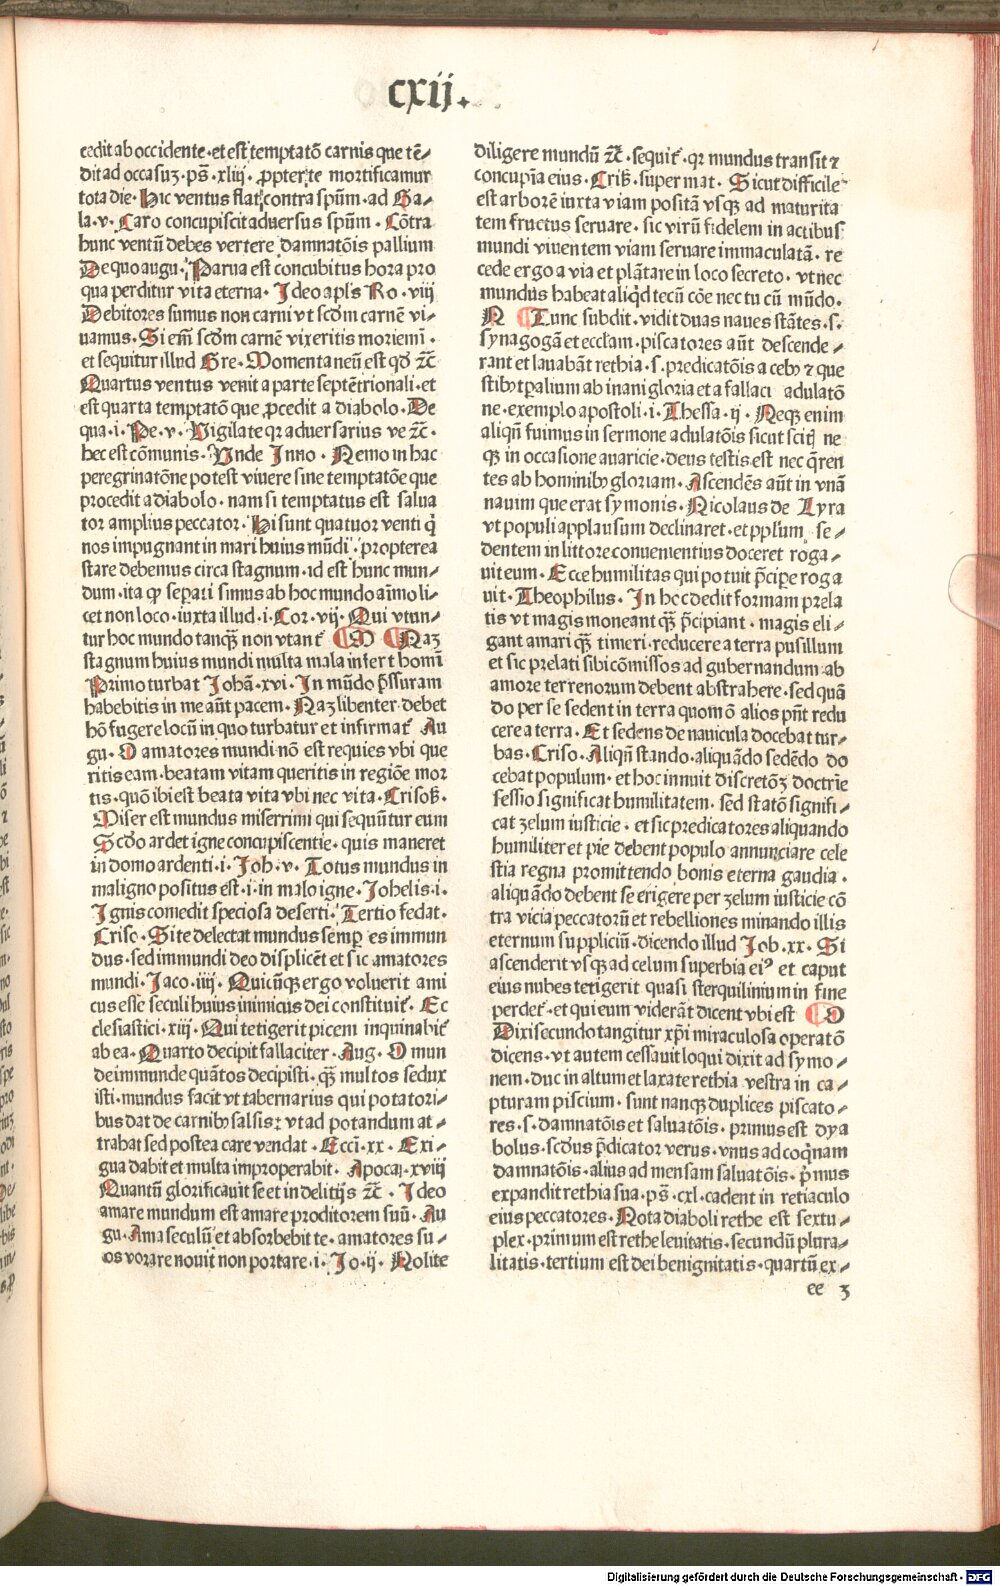 cxij.
cedit ab occidente·et est temptatō carnis que tē⸗
dit ad occasuʒ·ps̄·xliij·ꝓpter te mortificamur
tota die·Hic ventus flat contra spūm·ad Ga⸗
la·v·Caro concupiscit adversus spūm·Cōtra
hunc ventū debes vertere damnatōis pallium
De quo augu·Parua est concubitus hora pro
qua perditur vita eterna·Ideo apls̄ Ro·viij
Debitores sumus non carni vt scdm̄ carnē vi⸗
uamus·Si em̄ scdm̄ carnē vixeritis moriemī·
et sequitur illud Gre·Momentaneū est qd̄ ⁊c̄
Quartus ventus venit a parte septētrionali·et
est quarta temptatō que ꝓcedit a diabolo·De
qua·i·Pe·v·Vigilate qꝛ aduersarius ve ⁊c̄·
hec est cōmunis·Vnde Inno·Nemo in hac
peregrinatōne potest viuere sine temptatōe que
procedit a diabolo·nam si temptatus est salua
tor amplius peccator·Hi sunt quatuor venti q̄
nos impugnant in mari huius mūdi·propterea
stare debemus circa stagnum·id est hunc mun⸗
dum·ita ꝙ separati simus ab hoc mundo aīmo li⸗
cet non loco·iuxta illud·i·Cor·vij·Qui vtun⸗
tur hoc mundo tanqꝫ non vtant̄ M Naʒ
stagnum huius mundi multa mala infert homī
Primo turbat Johā·xvi·In mūdo p̄ssuram
habebitis in me aūt pacem·Naʒ libenter debet
hō fugere locū in quo turbatur et infirmat̄ Au
gu·O amatores mundi nō est requies vbi que
ritis eam·beatam vitam queritis in regiōe mor
tis·quō ibi est beata vita vbi nec vita·Crisoſt̄.
Miser est mundus miserrimi qui sequūtur eum
Scd̄o ardet igne concupiscentie·quis maneret
in domo ardenti·i·Joh·v·Totus mundus in
maligno positus est·i·in malo igne·Johelis·i·
Ignis comedit speciosa deserti·Tertio fedat·
Criso·Si te delectat mundus semꝑ es immun
dus·sed immundi deo displicēt et sic amatores
mundi·Jaco·iiij·Quicūqꝫ ergo voluerit ami
cus esse seculi huius inimicus dei constituit̄·Ec
clesiastici·xiij·Qui tetigerit picem inquinabit̄
ab ea·Quarto decipit fallaciter·Aug·O mun
de immunde quātos decipisti·qꝫ multos sedux
isti·mundus facit vt tabernarius qui potatori⸗
bus dat de carnibꝰ salsis:vt ad potandum at⸗
trahat sed postea care vendat·Ecci·xx·Exi⸗
gua dabit et multa improperabit·Apoca·xviij
Quantū glorificauit se et in delitijs ⁊c̄·Ideo
amare mundum est amare proditorem suū·Au
gu·Ama seculū et absorbebit te·amatores su⸗
os vorare nouit non portare·i·Jo·ij·Nolite
diligere mundū ⁊c̄·sequit̄·qꝛ mundus transit ⁊
concupīa eius·Cris̄·super mat·Sicut difficile
est arborē iuxta viam positā vsqꝫ ad maturita
tem fructus seruare·sic virū fidelem in actibus
mundi viuentem viam seruare immaculatā·re
cede ergo a via et plātare in loco secreto·vt nec
mundus habeat aliqd̄ tecū cōe nec tu cū mūdo.
N Tunc subdit·vidit duas naues stātes·s·
synagogā et eccl̄am·piscatores aūt descende⸗
rant et lauabāt rethia·s·predicatōis a cebꝰ ⁊ que
stibꝰ tꝑalium ab inani gloria et a fallaci adulatō
ne·exemplo apostoli·i·Thessa·ij·Neqꝫ enim
aliqn̄ fuimus in sermone adulatōis sicut scitꝭ ne
qꝫ in occasione auaricie·deus testis est nec q̄ren
tes ab hominibꝰ gloriam·Ascendēs aūt in vnā
nauim que erat symonis·Nicolaus de Lyra
vt populi applausum declinaret·et pplūm se⸗
dentem in littore conuenientius doceret roga⸗
uit eum·Ecce humilitas qui potuit p̄cipe roga
uit·Theophilus·In hoc dedit formam prela
tis vt magis moneant qꝫ p̄cipiant·magis eli⸗
gant amari qꝫ timeri·reducere a terra pusillum
et sic prelati sibi cōmissos ad gubernandum ab
amore terrenorum debent abstrahere·sed quā
do per se sedent in terra quomō alios pn̄t redu
cere a terra·Et sedens de nauicula docebat tur⸗
bas·Criso·Aliqn̄ stando·aliquādo sedēdo do
cebat populum·et hoc innuit discretōʒ doctrīe
sessio significat humilitatem·sed statō signifi⸗
cat zelum iusticie·et sic predicatores aliquando
humiliter et pie debent populo annunciare cele
stia regna promittendo bonis eterna gaudia·
aliquādo debent se erigere per zelum iusticie cō
tra vicia peccatorū et rebelliones minando illis
eternum suppliciū·dicendo illud Job·xx·Si
ascenderit vsqꝫ ad celum superbia eiꝰ et caput
eius nubes tetigerit quasi sterquilinium in fine
perdet̄·et qui eum viderāt dicent vbi est O
Dixi secundo tangitur xp̄i miraculosa operatō
dicens·vt autem cessauit loqui dixit ad symo⸗
nem·duc in altum et laxate rethia vestra in ca⸗
pturam piscium·sunt nanqꝫ duplices piscato⸗
res·s·damnatōis et saluatōis·primus est dya
bolus·scd̄us p̄dicator verus·vnus ad coqnam
damnatōis·alius ad mensam saluatōis·p̄mus
expandit rethia sua·ps̄·cxl·cadent in retiaculo
eius peccatores·Nota diaboli rethe est sextu⸗
plex·primum est rethe leuitatis·secundū plura⸗
litatis·tertium est dei benignitatis·quartū ex⸗
ee 3
Digitalisierung gefördert durch die Deutsche Forschungsgemeinschaft · DFG